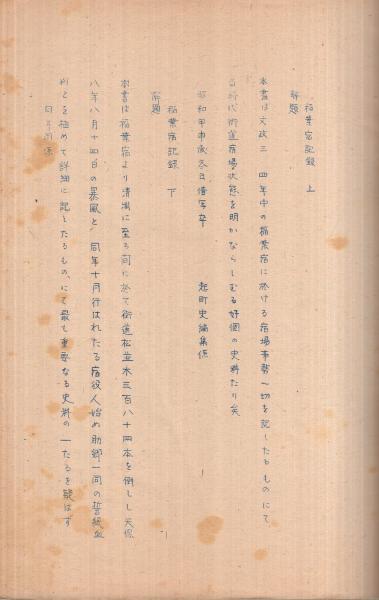 稲葉宿記録　上
解題
本書は文政三　四年中の稲葉宿に於ける宿場事務一切を記したるものにて
当時代街道宿場状態を明かならしむる好個の史料たり矣
昭和甲申歳冬日借写畢　　起町史編集係
稲葉宿記録　下
解題
本書は稲葉宿より清洲に至る間に於て街道松並木三百八十四本を倒しし天保
八年八月十四日の暴風と　同年十月行はれたる宿役人始め助郷一同の誓紙血
判とを極めて詳細に記したるものにて最も重要なる史料の一たるを疑はず
同